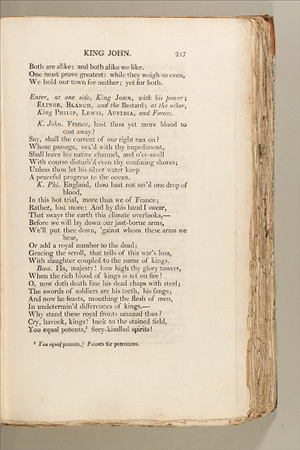 KING JOHN. 217
Both are alike; and both alike we like.
One must prove greatest: while they weigh so even,
We hold our town for neither; yet for both.
Enter, at one side, King JOHN, with his power;
ELINOR, BLANCH, and the Bastard; at the other,
King PHILIP, LEWIS, AUSTRIA, and Forces.
K. John. France, hast thou yet more blood to
cast away?
Say, shall the current of our right run on?
Whose passage, vex'd with thy impediment,
Shall leave his native channel, and o'er-swell
With course disturb'd even thy confining shores;
Unless thou let his silver water keep
A peaceful progress to the ocean.
K. Phi. England, thou hast not sav'd one drop of
blood,
In this hot trial, more than we of France;
Rather, lost more: And by this hand I swear,
That sways the earth this climate overlooks,—
Before we will lay down our just-borne arms,
We'll put thee down, 'gainst whom these arms we
bear,
Or add a royal number to the dead;
Gracing the scroll, that tells of this war's loss,
With slaughter coupled to the name of kings.
Bast. Ha, majesty! how high thy glory towers,
When the rich blood of kings is set on fire!
O, now doth death line his dead chaps with steel;
The swords of soldiers are his teeth, his fangs;
And now he feasts, mouthing the flesh of men,
In undetermin'd differences of kings.—
Why stand these royal fronts amazed thus?
Cry, havock, kings! back to the stained field,
You equal potents, fiery-kindled spirits!
You equal potents,] Potents for potentates.